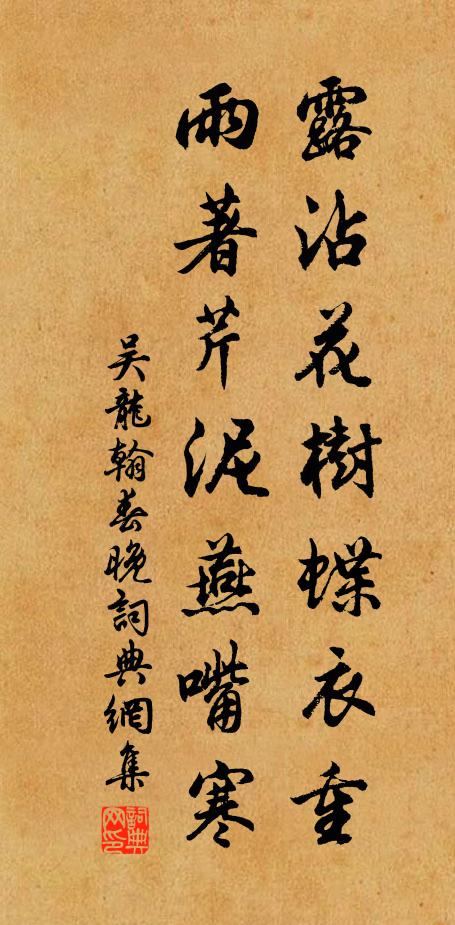 露沾花樹蝶衣重
雨著芹泥燕嘴寒
吴龍翰春晚詞典網集
詞典网印